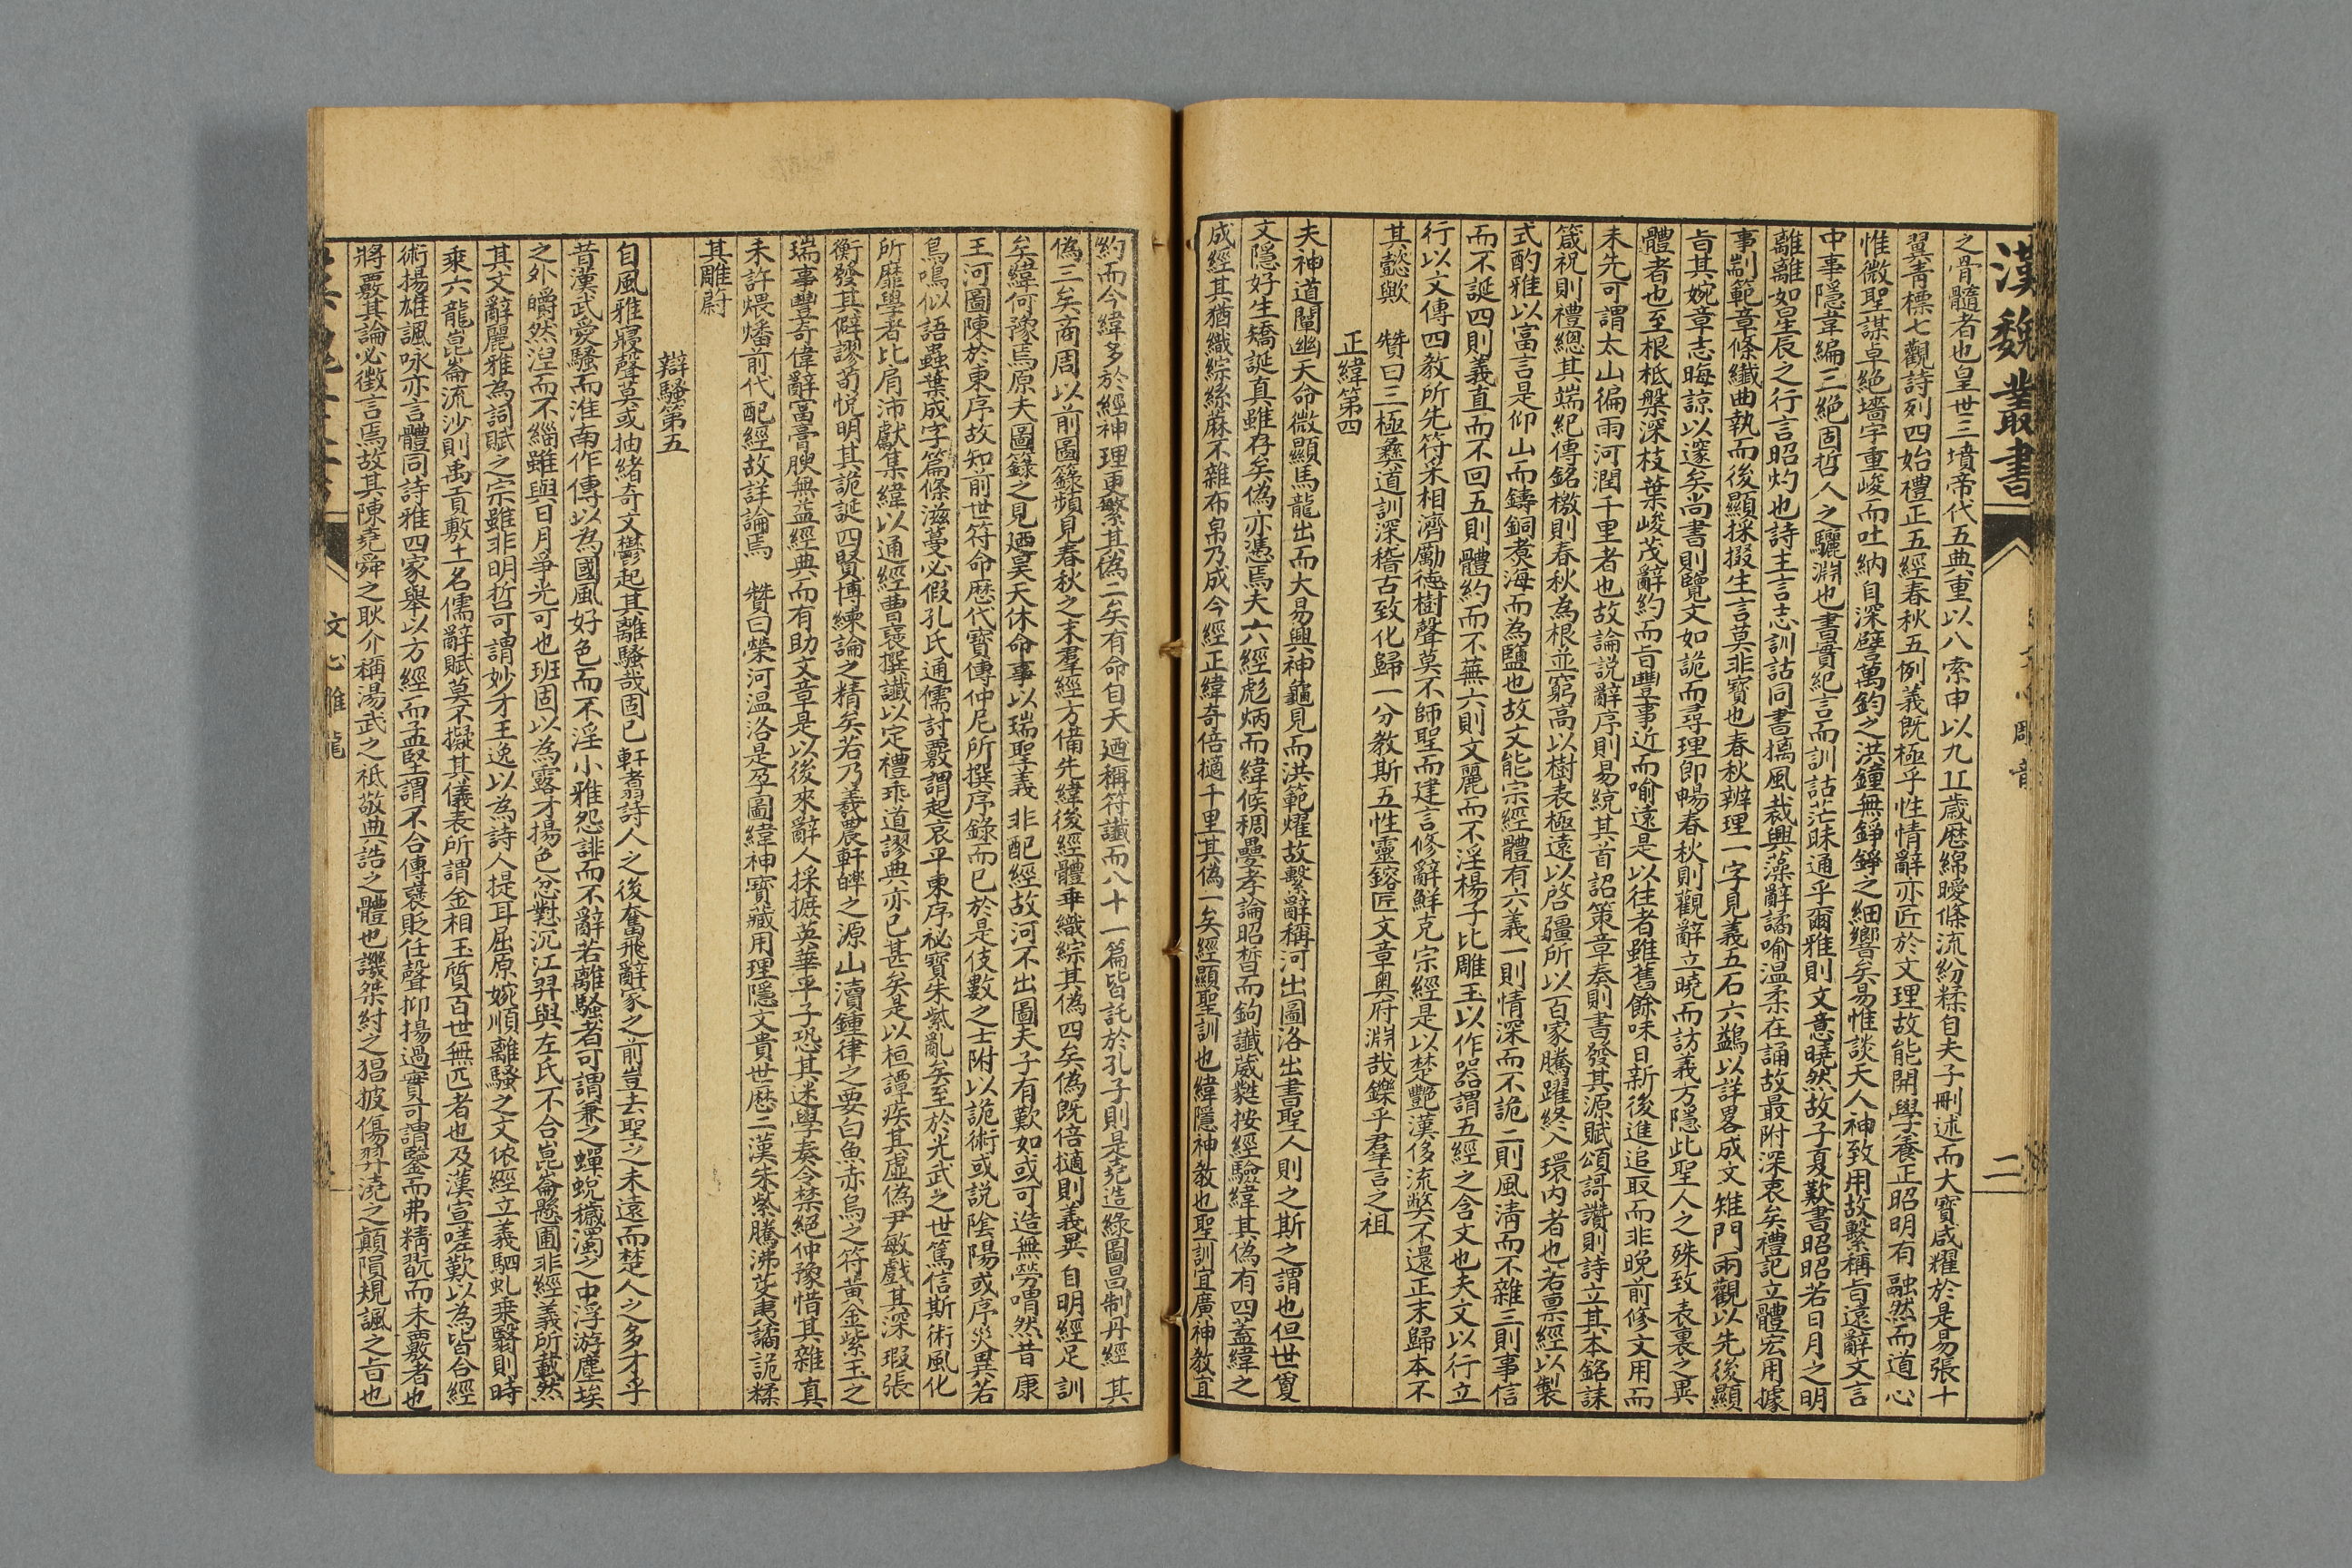 漢魏叢書
二
之骨髓者也皇世三墳帝代五典重以八索申以九丘歲歷綿曖條流紛糅自夫子刪述而大寶咸耀於是易張十
翼青標七觀詩列四始禮正五經春秋五例義既極乎性情辭亦匠於文理故能開學養正昭明有融然而道心
惟微聖謀卓絕墻宇重峻而吐納自深譬萬鈞之洪鐘無錚錚之細響矣易惟談天人神致用故繫稱旨遠辭文言
中事隱韋編三絕固哲人之驪淵也書實紀言而訓詁茫昧通乎爾雅則文意曉然故子夏歎書昭昭若日月之明
離離如星辰之行言昭灼也詩主言志訓詁同書摛風裁興藻辭譎喻溫柔在誦故最附深衷矣禮記立體宏用據
事剬範章條纖曲執而後顯採掇生言莫非寶也春秋辨理一字見義五石六鷁以詳畧成文雉門兩觀以先後顯
旨其婉章志晦諒以邃矣尚書則覽文如詭而尋理即暢春秋則觀辭立曉而訪義方隱此聖人之殊致表裏之異
體者也至根柢槃深枝葉峻茂辭約而旨豐事近而喻遠是以往者雖舊餘味日新後進追取而非晚前修文用而
未先可謂太山徧雨河潤千里者也故論説辭序則易統其首詔策章奏則書發其源賦頌謌讚則詩立其本銘誄
箴祝則禮總其端紀傳銘檄則春秋為根並窮高以樹表極遠以啓疆所以百家騰躍終入環內者也若禀經以製
式酌雅以富言是仰山而鑄銅煮海而為鹽也故文能宗經體有六義一則情深而不詭二則風清而不雜三則事信
而不誕四則義直而不回五則體約而不蕪六則文麗而不淫楊子比雕玉以作器謂五經之含文也夫文以行立
行以文傳四教所先符采相濟勵德樹聲莫不師聖而建言修辭鮮克宗經是以楚艷漢侈流獘不還正末歸本不
其懿歟　贊曰三極彝道訓深稽古致化歸一分教斯五性靈鎔匠文章奥府淵哉鑠乎羣言之祖
正緯第四
夫神道闡幽天命微顯馬龍出而大易興神龜見而洪範燿故繫辭稱河出圖洛出書聖人則之斯之謂也但世夐
文隱好生矯誕真雖存矣偽亦憑焉夫六經彪炳而緯候稠疊孝論昭晳而鉤讖葳蕤按經驗緯其偽有四蓋緯之
成經其猶織綜絲麻不雜布帛乃成今經正緯奇倍擿千里其偽一矣經顯聖訓也緯隱神教也聖訓宜廣神教宜
約而今緯多於經神理更繁其偽二矣有命自天廼稱符讖而八十一篇皆託於孔子則是堯造綠圖昌制丹經其
偽三矣商周以前圖籙頻見春秋之末羣經方備先緯後經體乖織綜其偽四矣偽既倍擿則義異自明經足訓
矣緯何豫焉原夫圖籙之見廼昊天休命事以瑞聖義非配經故河不出圖夫子有歎如或可造無勞喟然昔康
王河圖陳於東序故知前世符命歷代寶傳仲尼所撰序錄而已於是伎數之士附以詭術或説陰陽或序災異若
鳥鳴似語蟲葉成字篇條滋蔓必假孔氏通儒討覈謂起哀平東序祕寶朱紫亂矣至於光武之世篤信斯術風化
所靡學者比肩沛獻集緯以通經曹襃撰讖以定禮乖道謬典亦已甚矣是以桓譚疾其虛偽尹敏戲其深瑕張
衡發其僻謬荀悅明其詭誕四賢博練論之精矣若乃羲農軒皥之源山瀆鍾律之要白魚赤烏之符黃金紫玉之
瑞事豐奇偉辭富膏腴無益經典而有助文章是以後來辭人採摭英華平子恐其迷學奏令禁絕仲豫惜其雜真
未許煨燔前代配經故詳論焉　贊曰榮河溫洛是孕圖緯神寶藏用理隱文貴世歷二漢朱紫騰沸芟夷譎詭糅
其雕蔚
辯騷第五
自風雅寢聲莫或抽緒奇文鬱起其離騷哉固已軒翥詩人之後奮飛辭家之前豈去聖之未遠而楚人之多才乎
昔漢武愛騷而淮南作傳以為國風好色而不淫小雅怨誹而不辭若離騷者可謂兼之蟬蛻穢濁之中浮游塵埃
之外皭然涅而不緇雖與日月爭光可也班固以為露才揚色忿懟沉江羿與左氏不合崑崙懸圃非經義所載然
其文辭麗雅為詞賦之宗雖非明哲可謂妙才王逸以為詩人提耳屈原婉順離騷之文依經立義駟虬乘翳則時
乘六龍崑崙流沙則禹貢敷土名儒辭賦莫不擬其儀表所謂金相玉質百世無匹者也及漢宣嗟歎以為皆合經
術揚雄諷咏亦言體同詩雅四家舉以方經而孟堅謂不合傳襃貶任聲抑揚過實可謂鑒而弗精翫而未覈者也
將覈其論必徵言焉故其陳堯舜之耿介稱湯武之祗敬典誥之體也譏桀紂之猖披傷羿澆之顛隕規諷之旨也
文心雕龍